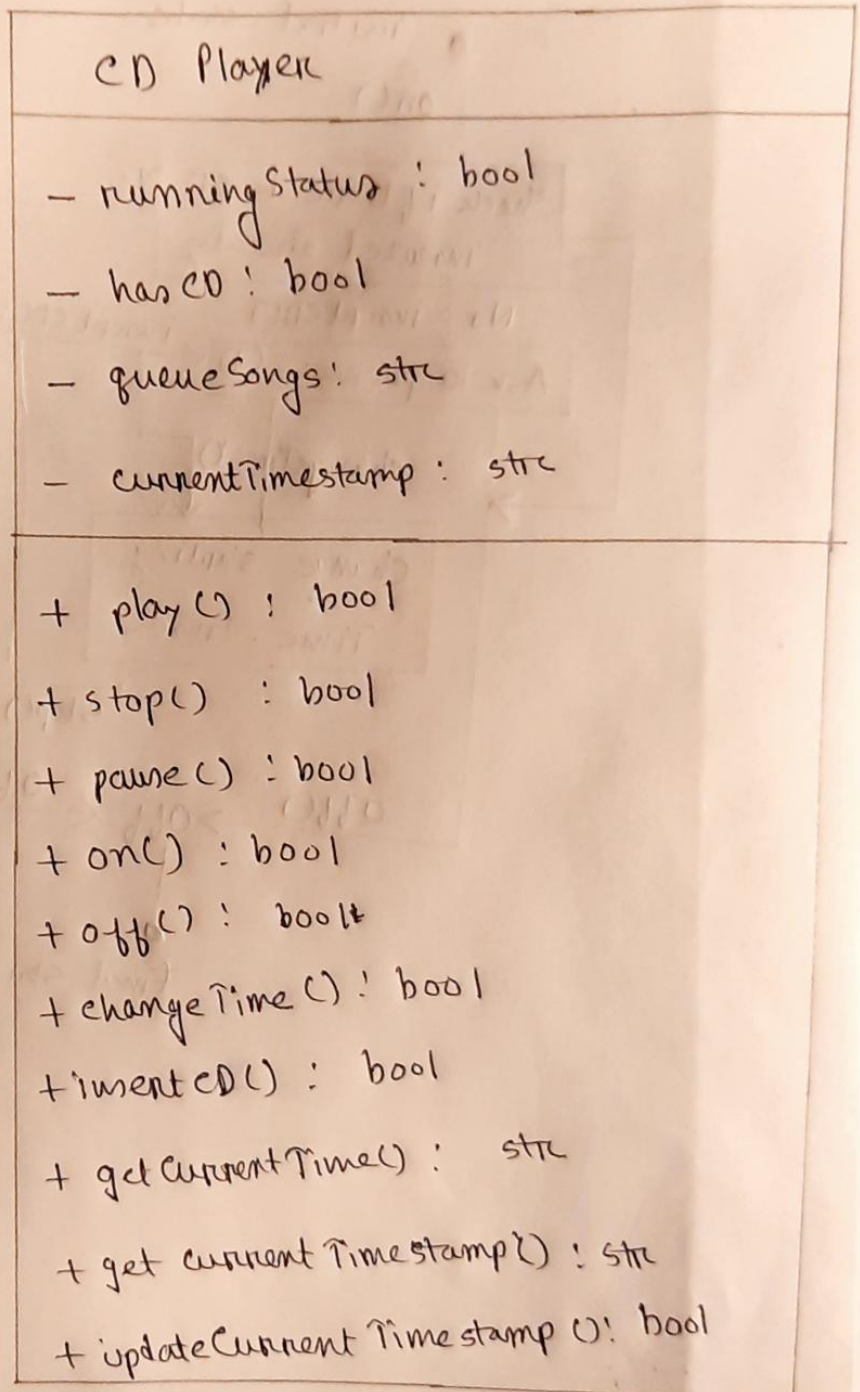 CD Player
- runningStatus : bool
- hasCD : bool
- queueSongs : str
- currentTimestamp : str
+ play() : bool
+ stop() : bool
+ pause() : bool
+ on() : bool
+ off() : bool
+ changeTime() : bool
+ insertCD() : bool
+ getCurrentTime() : str
+ get currentTimestamp() : str
+ updateCurrentTimestamp() : bool